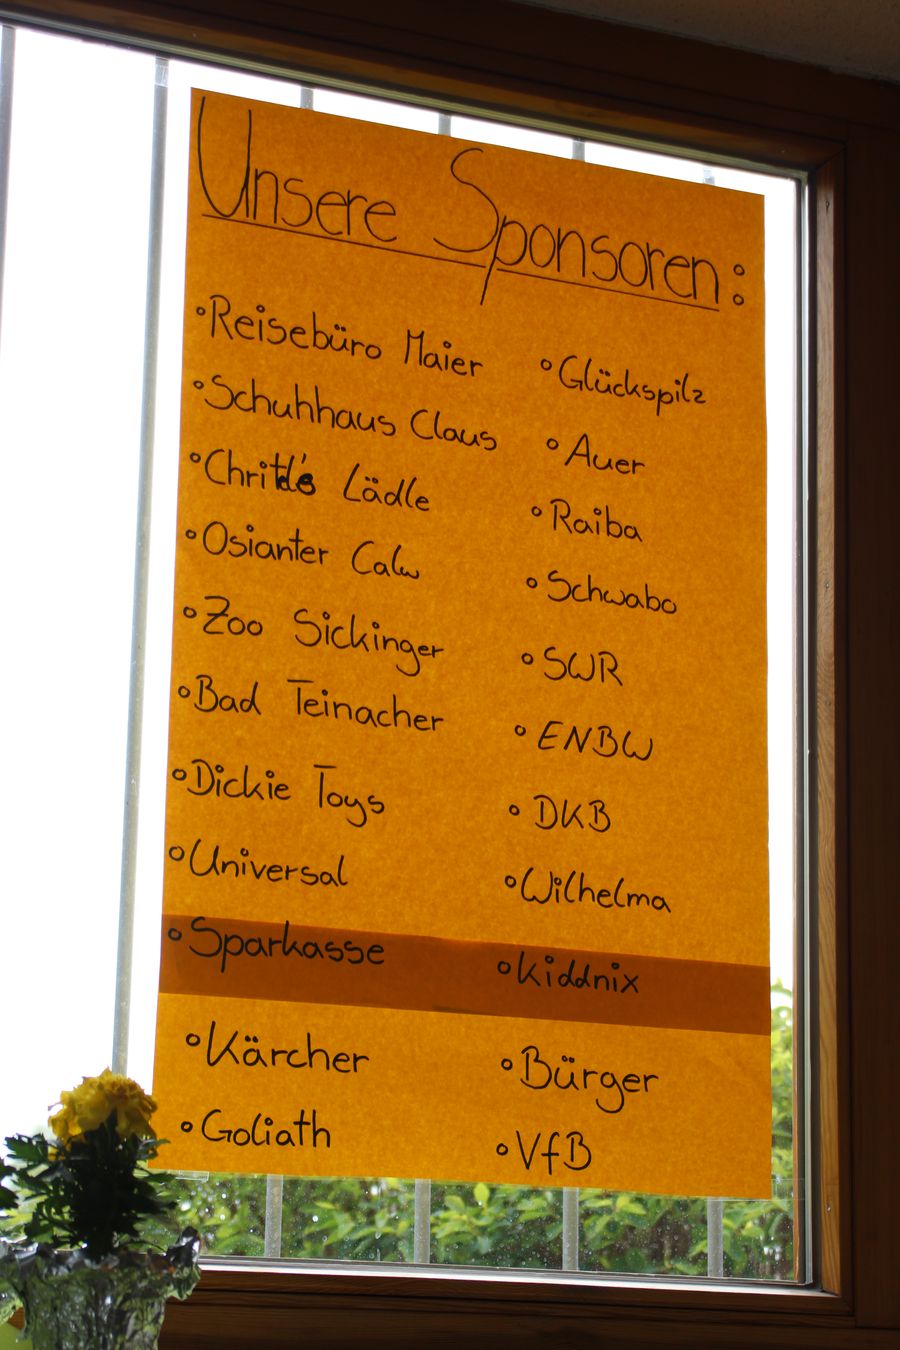 Unsere Sponsoren:
° Reisebüro Maier
° Schuhhaus Claus
° Lädle
° Osianter Calw
° Zoo Sickinger
° Bad Teinacher
° Dickie Toys
° Universal
° Sparkasse
° Kärcher
° Goliath
° Glückspilz
° Auer
° Raiba
° Schwabo
° SWR
° ENBW
° DKB
° Wilhelma
° Kiddnix
° Bürger
° VfB